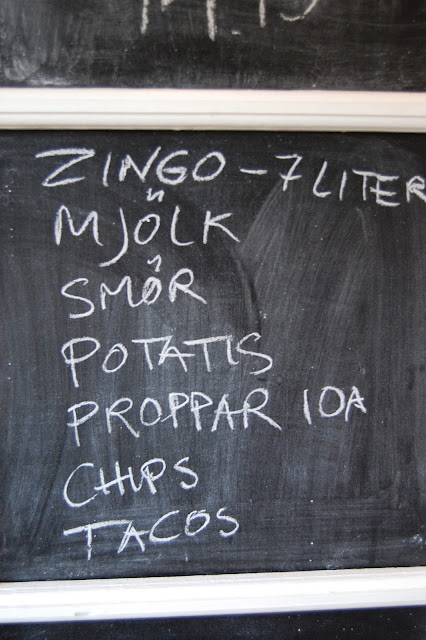 ZINGO - 7 LITER
MJÖLK
SMÖR
POTATIS
PROPPAR 10A
CHIPS
TACOS